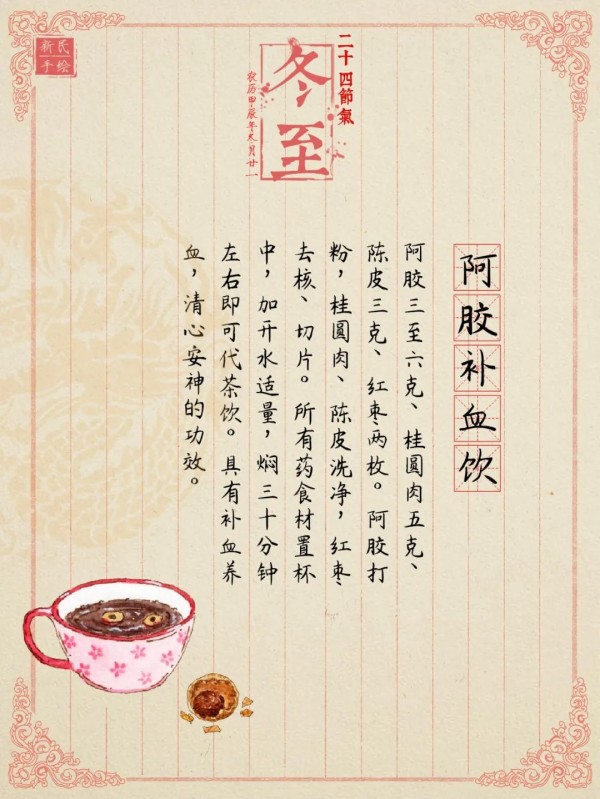 新民
手绘
二十四節氣
冬至
农历甲辰年冬月廿一
阿胶补血饮
阿胶三至六克、桂圆肉五克、
陈皮三克、红枣两枚。阿胶打
粉，桂圆肉、陈皮洗净，红枣
去核、切片。所有药食材置杯
中，加开水适量，焖三十分钟
左右即可代茶饮。具有补血养
血，清心安神的功效。